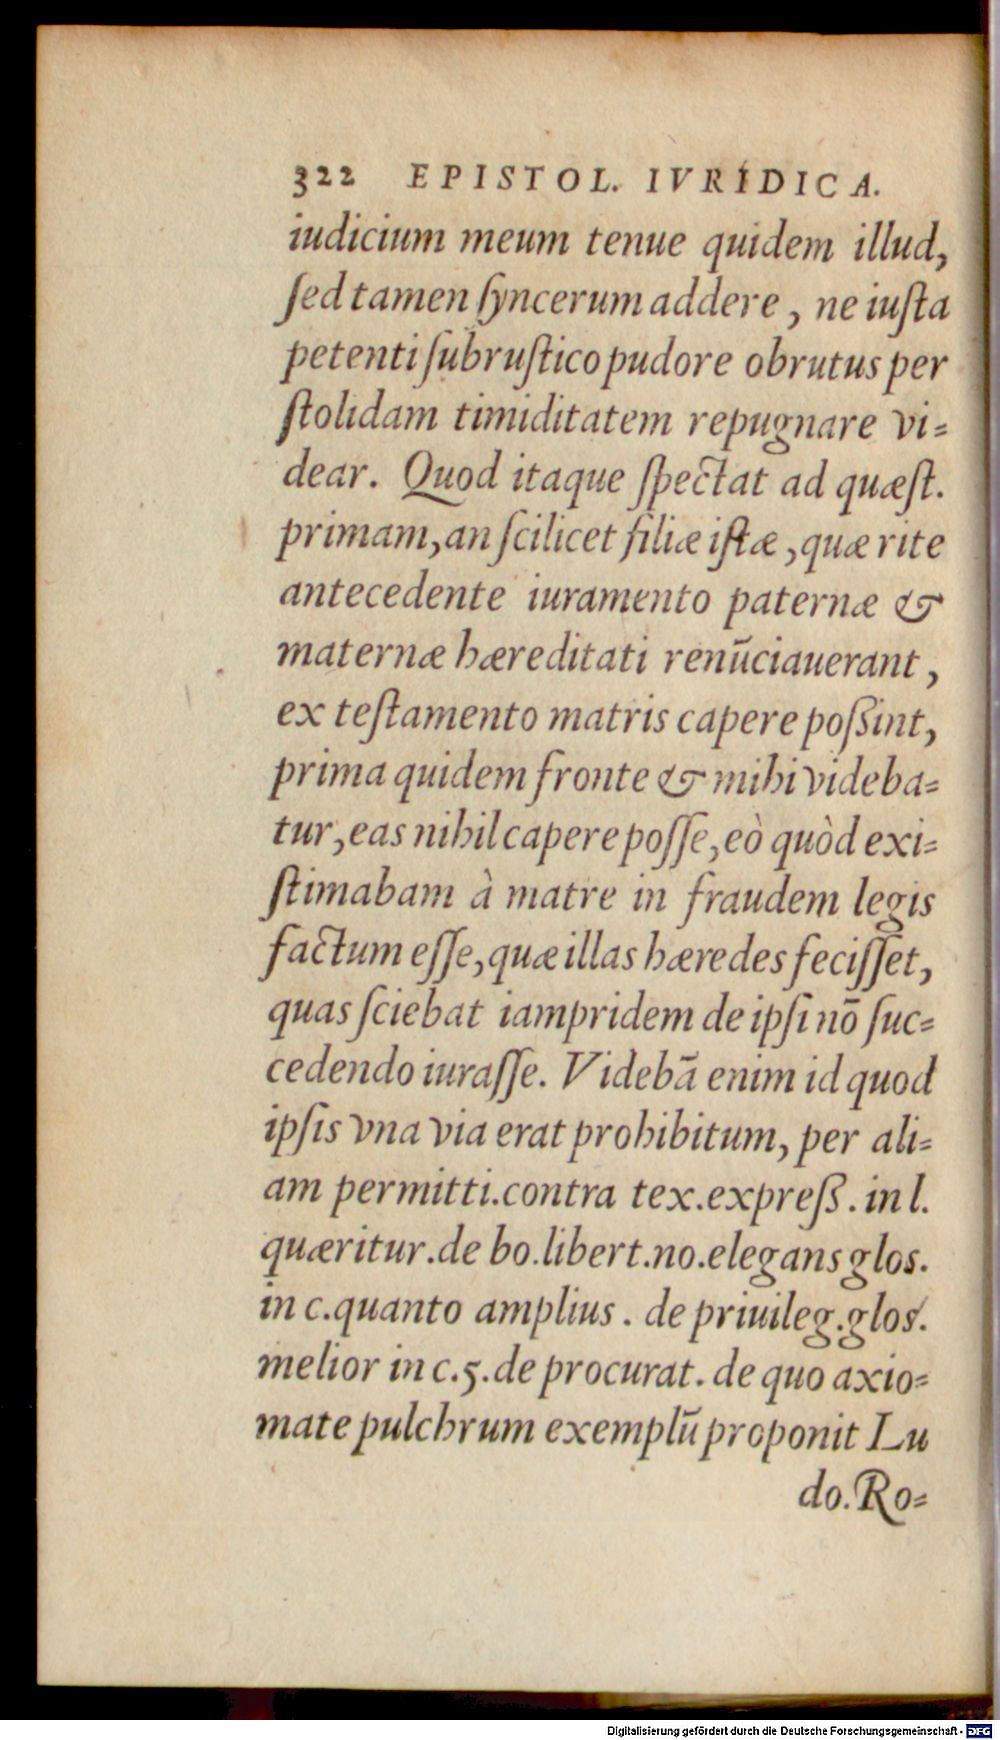 322 EPISTOL. IVRIDICA.
iudicium meum tenue quidem illud,
ſed tamen ſyncerum addere, ne iuſta
petenti ſubruſtico pudore obrutus per
ſtolidam timiditatem repugnare vi⸗
dear. Quod itaque ſpectat ad quæſt.
primam, an ſcilicet filiæ iſtæ, quæ rite
antecedente iuramento paternæ &
maternæ hæreditati renūciauerant,
ex teſtamento matris capere poſsint,
prima quidem fronte & mihi videba⸗
tur, eas nihil capere poſſe, eò quòd exi⸗
ſtimabam à matre in fraudem legis
factum eſſe, quæ illas hæredes feciſſet,
quas ſciebat iampridem de ipſi nō ſuc⸗
cedendo iuraſſe. Videbā enim id quod
ipſis vna via erat prohibitum, per ali⸗
am permitti. contra tex. expreſs. in l.
quæritur. de bo. libert. no. elegans glos.
in c. quanto amplius. de priuileg. glos.
melior in c. 5. de procurat. de quo axio⸗
mate pulchrum exemplū proponit Lu
do. Ro⸗
Digitalisierung gefördert durch die Deutsche Forschungsgemeinschaft - DFG